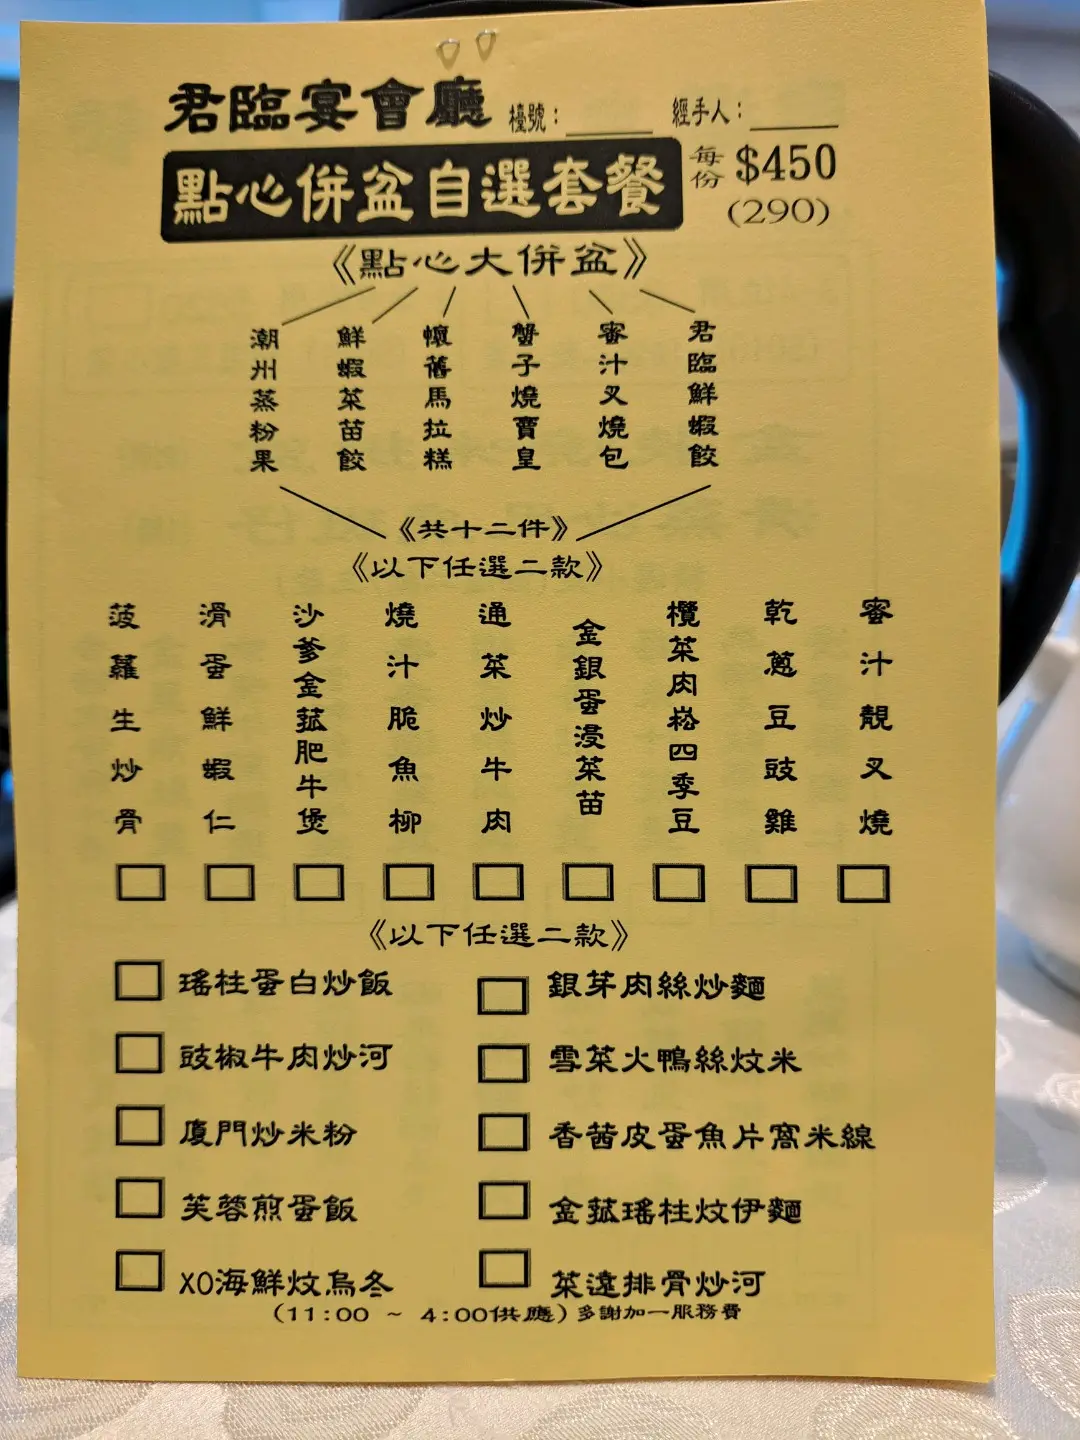 君臨宴會廳 檯號：____ 經手人：____
點心併盆自選套餐 每份 $450
(290)
《點心大併盆》
潮州蒸粉果
鮮蝦菜苗餃
懷舊馬拉糕
蟹子燒賣皇
蜜汁叉燒包
君臨鮮蝦餃
《共十二件》
《以下任選二款》
菠蘿生炒骨
滑蛋鮮蝦仁
沙爹金菰肥牛煲
燒汁脆魚柳
通菜炒牛肉
金銀蛋浸菜苗
欖菜肉崧四季豆
乾蔥豆豉雞
蜜汁靚叉燒
《以下任選二款》
瑤柱蛋白炒飯
銀芽肉絲炒麵
豉椒牛肉炒河
雪菜火鴨絲炆米
廈門炒米粉
香茜皮蛋魚片窩米線
芙蓉煎蛋飯
金菰瑤柱炆伊麵
XO海鮮炆烏冬
菜遠排骨炒河
(11:00 ~ 4:00供應) 多謝加一服務費